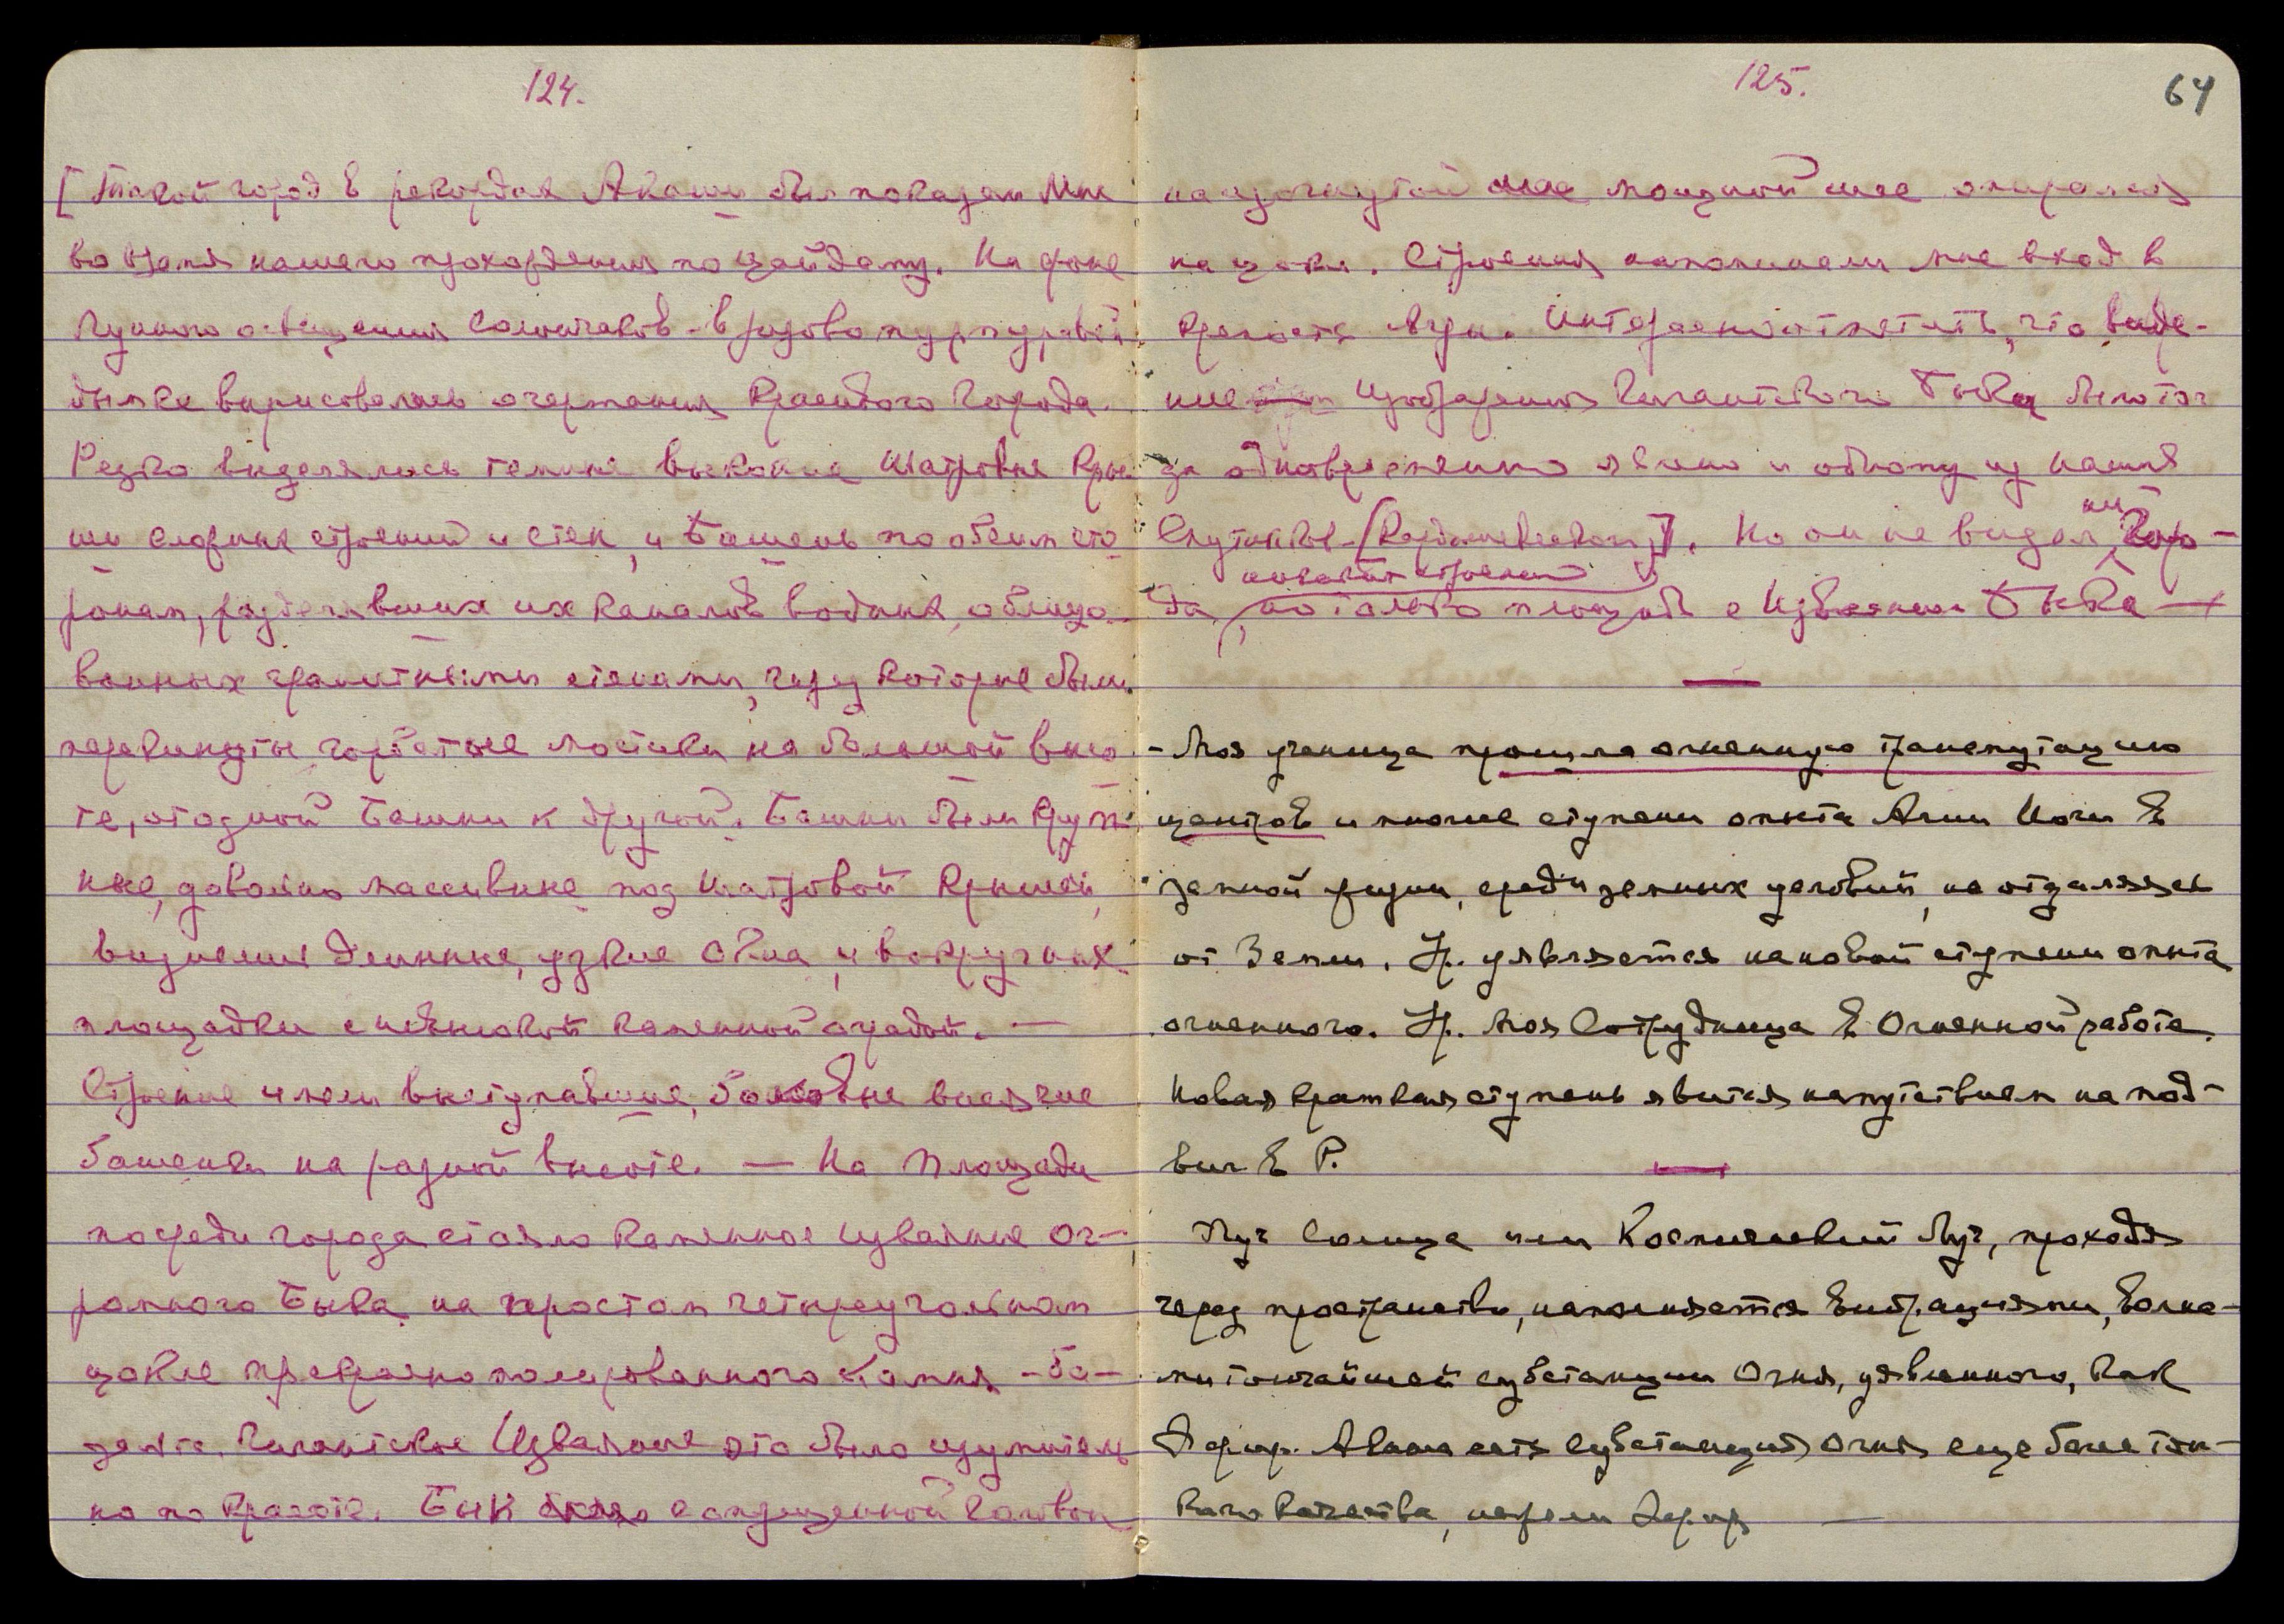 124.
[Такой город в рекордах Акаши был показан Мне
во время нашего прохождения по Цайдаму. На фоне
лунного освещения солончаков - в розово пурпуровой
дымке вырисовались очертания Красивого Города.
Резко выделялись темные высокие Шатровые Кры-
ши сложных строений и стен, и Башень по обеим сто
ронам, разделявших их каналов водных, облицо-
ванных гранитными стенами, через которые были
перекинуты горбатые мостики на большой высо
те, от одной Башни к другой. Башни были круп-
ные, довольно массивные под Шатровой Крышей,
виднелись длинные, узкие окна, и вокруг них
площадки с невысокой каменной оградой. —
Строение имели выступавшие, боковые висячие
башенки на разной высоте. — На Площади
посреди города стояло Каменное изваяние ог-
ромного Быка на простом четыреугольном
цокле прекрасно полированного камня - ба-
зальта. Гигантское Изваяние это было изумитель
но по Красоте. Бык стоял с опущенной головой
125.
64
на изогнутой мощной шее опирался
на цокль. Строения напоминали мне вход в
Крепость Агры. Интересно отметить, что виде-
ние изображения Гигантского Быка было тог
да одновременно явлено и одному из наших
Спутников - [Кардашевскому]. Но он не видел ни Горо-
да, ни самих строений, но только площадь с Изваянием Быка —
- Моя ученица прошла огненную трансмутацию
центров и многие ступени опыта Агни Йоги в
земной жизни, среди земных условий, не отдаляясь
от Земли. Ур. уявляется на новой ступени опыта
огненного. Ур. Моя Сотрудница в Огненной работе.
Новая краткая ступень явится напутствием на под-
виг в Р.
Луч Солнца или Космический Луч, проходя
через пространство, наполняется вибрациями, волна-
ми тончайшей субстанции Огня, уявленного, как
Эфир. Акаша есть субстанция Огня еще более тон-
кого качества, нежели Эфир —